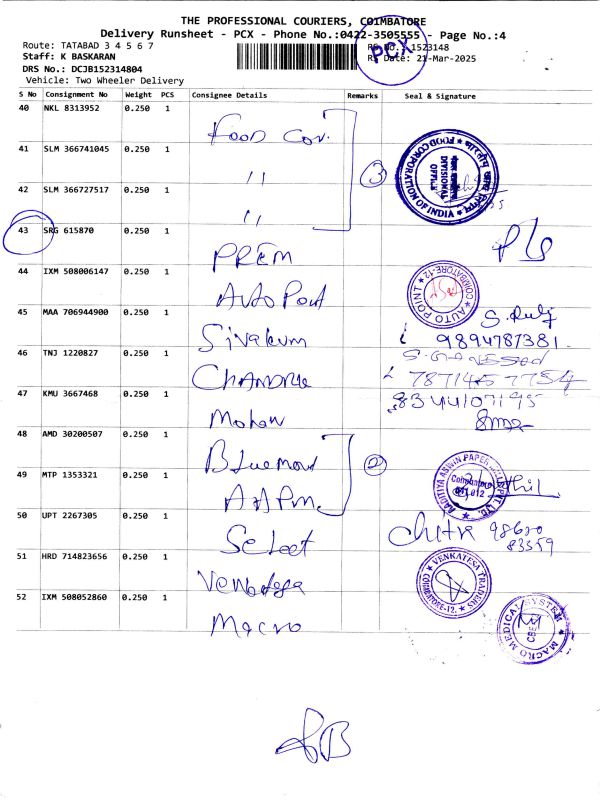 THE PROFESSIONAL COURIERS, COIMBATORE
Delivery Runsheet - PCX - Phone No.:0422-3505555 - Page No.:4
Route: TATABAD 3 4 5 6 7
RS No.: 1523148
Staff: K BASKARAN
RS Date: 21-Mar-2025
PCX
DRS No.: DCJB152314804
Vehicle: Two Wheeler Delivery
S No Consignment No Weight PCS Consignee Details Remarks Seal & Signature
40 NKL 8313952 0.250 1
Food Cor.
41 SLM 366741045 0.250 1
11
3
FOOD CORPORATION OF INDIA
DIVISIONAL OFFICE
42 SLM 366727517 0.250 1
11
43 SRG 615870 0.250 1
PREM
44 IXM 508006147 0.250 1
Auto Point
AUTO POINT COIMBATORE-12
45 MAA 706944900 0.250 1
Sivakum
9894787381
46 TNJ 1220827 0.250 1
Chandra
47 KMU 3667468 0.250 1
8344107195
Mohan
48 AMD 30200507 0.250 1
Bluemount
2
49 MTP 1353321 0.250 1
AADITIYA ASWIN PAPER MILLS PVT. LTD.
Coimbatore
641 012
50 UPT 2267305 0.250 1
Select
98620
83559
51 HRD 714823656 0.250 1
VENKATESA TRADERS
COIMBATORE-12.
52 IXM 508052860 0.250 1
Macro
MACRO MEDICAL SYSTEM